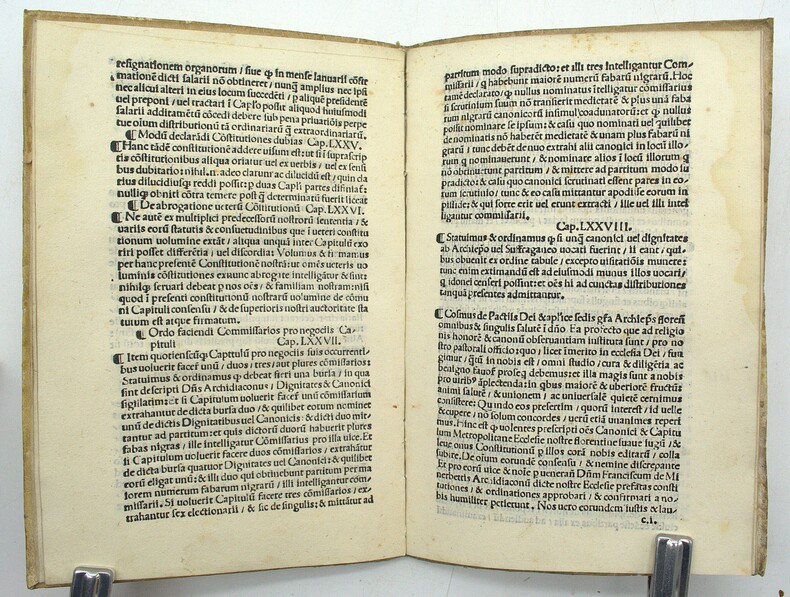 resignationem organorum / siue ꝙ in mense Ianuarii cōfir
mationē dicti salarii nō obtineret / nunꝗ̄ amplius nec ipsi
nec alicui alteri in eius locum succedēti / p aliquē presidentē
uel preponi / uel tractari ī Capło possit aliquod huiusmodi
salarii additamētū cōcedi debere sub pena priuatiōis perpe
tue oīum distributionū tā ordinariarū ꝗ̄ extraordinariarū.
¶ Modꝰ declarādi Cōstitutiones dubias Cap. LXXV.
¶ Hanc tādē constitutionē addere uisum est: ut si ī suprascrip
tis cōstitutionibus aliqua oriatur uel ex uerbis / uel ex sensu
bus dubitatio: nihil.n. adeo clarum ac dilucidū est / quin cla
rius dilucidiusꝗ reddi possit: p duas Capłi partes difiniat̄:
nulliꝗ obniti cōtra temere post ꝗ̄ determinatū fuerit liceat
¶ De abrogatione ueterū Cōstitutionū Cap. LXXVI.
¶ Ne autē ex multiplici predecessorū nostrorū sententia / &
uariis eorū statutis & consuetudinibus que ī ueteri constitu
tionum uolumine extāt / aliqua unquā inter Capituli exo
riri posset differētia / uel discordia: Volumus & firmamus
per hanc presentē Constitutionē nostrā: ut omēs ueteris uo
luminis cōstitutiones ex nunc abrogate intelligātur & sint:
nihilꝗ seruari debeat p nos oēs / & familiam nostram: nisi
quod ī presenti constitutionū nostrarū uolumine de cōmu
ni Capituli consensu / & de superioris nostri auctoritate sta
tutum est atque firmatum.
¶ Ordo faciendi Commissarios pro negociis Ca-
pituli Cap. LXXVII.
¶ Item quotienscūꝗ Capitulū pro negociis suis occurrenti-
bus uoluerit facef unū / duos / tres / aut plures cōmissarios:
Statuimus & ordinamus ꝙ debeat fieri una bursa / in qua
sint descripti Dn̄s Archidiaconus / Dignitates & Canonici
sigillatim: Et si Capitulum uoluerit facef unū cōmissarium
extrahantur de dicta bursa duo / & quilibet eotum nominet
unū de dictis Dignitatibus uel Canonicis: & dicti duo mit-
tantur ad partitum: et quis dictorū duorū habuerit plures
fabas nigras / ille intelligatur Cōmissarius pro illa uice. Et
si Capitulum uoluerit facere duos cōmissarios / extrahātur
de dicta bursa quatuor Dignitates uel Canonici: & quilibet
eorū eligat unū: & illi duo qui obtinebunt partitum per ma
iorem numerum fabarum nigrarū / illi intelligantur com-
missarii. Si uoluerit Capitulū facere tres cōmissarios / ex-
trahantur sex electionarii / & sic de singulis: & mittātur ad
partitum modo supradicto: et illi tres Intelligantur Com-
missarii / q habebunt maiorē numerū fabarū nigrarū. Hoc
tamē declarato / ꝙ nullus nominatus ītelligatur cōmissarius
si scrutinium suum nō transierit medietatē & plus unā faba
rum nigrarū canonicorū insimul cōadunatorū: et ꝙ nullus
possit nominare se ipsum: & casu quo nominati uel quilibet
de nominatis nō haberēt medietatē & unam plus fabarū ni
grarū / tunc debēt de nuo extrahi alii canonici in locū illo-
rum q nominauerunt / & nominare alios ī locū illorum q
nō obtinuerunt partitum / & mittere ad partitum modo su
pradicto: & casu quo canonici scrutinati essent pares in eo-
rum scrutinio / tunc & eo casu mittantur apodise eorum in
pillide: & qui sorte erit uel erunt extracti / ille uel illi intel
ligantur commissarii.
Cap. LXXVIII.
¶ Statuimus & ordinamus ꝙ si unꝗ̄ canonici uel dignitates
ab Archiepo uel Suffraganeo uocati fuerint / ii eant / qui-
bus obuenit ex ordine tabule / excepto uisitatiōis munere:
tunc enim extimandū est ad eiusmodi munus illos uocari /
q idonei censeri possint: et oēs hi ad cunctas distributiones
tanquā presentes admittantur.
¶ Cosmus de Pactiis Dei & aplice sedis gr̄a Archiep̄s floren̄
omnibus & singulis salutē ī dn̄o. Ea profecto que ad religio
nis honorē & canonū obseruantiam instituta sunt / pro no
stro pastorali officio: quo / licet īmerito in ecclesia Dei / fun
gimur / quātū in nobis est / omni studio / cura & diligētia ac
benigno fauof proseꝗ debemus: et illa magis sunt a nobis
pro uiribꝰ āplectenda: in qbus maiorē & uberiorē fructūs
animi salutē / & unionem / ac uniuersalē quietē cernimus
consistere: Quando eos presertim / quorū interest / id uelle
& cupere / nō solum concordes / uerū etiā unanimes reperi
mus. Hinc est ꝙ uolentes prescripti oēs Canonici & Capitu
lum Metropolitane Ecclesie nostre florentine suaue iugū / &
leue onus Constitutionū p illos corā nobis editarū / colla
subire. De oīum eorundē consensu / & nemine discrepante
Et pro eorū uice & noīe p uenerān̄ Dn̄m Franciscum de Mi
nerbettis Archidiaconū dicte nostre Ecclesie prefatas consti
tutiones / & ordinationes approbari / & confirmari a no-
bis humiliter petierunt. Nos uero eorundem iustis & lau-
c.i.